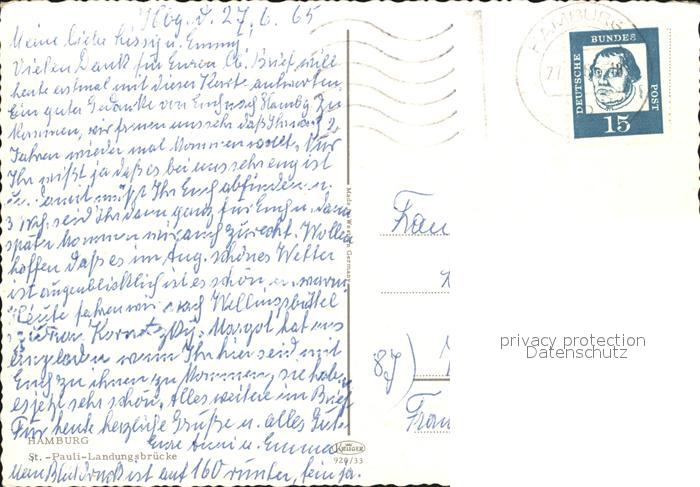 Hbg. d. 27.6.65
Meine liebe Sissy u. Emmy,
Vielen Dank für Euren lb. Brief will
heute erstmal mit dieser Karte antworten.
Ein guter Gedanke von Euch nach Hambg zu
kommen, wir freuen uns sehr daß Ihr nach 2
Jahren wieder mal kommen wollt. Nur
Ihr wißt ja daß es bei uns sehr eng ist
u. damit müßt Ihr Euch abfinden u.
3 Wch. seid Ihr dann ganz für Euch u. dann
später kommen wir auch zurecht. Wollen
hoffen daß es im Aug. schönes Wetter
ist augenblicklich ist es schön u. warm
Heute fahren wir nach Wellingsbüttel
zu Frau Margot hat uns
eingeladen wenn Ihr hier seid mit
Euch zu ihnen zu kommen, sie haben
es jetzt sehr schön. Alles weitere im Brief
Für heute herzliche Grüße u. alles Gute
Eure Anni u. Emma
Mein Blutdruck ist auf 160 runter, fein ja.
HAMBURG
St.-Pauli-Landungsbrücke
Made in Western Germany
KRÜGER
920/33
HAMBURG
DEUTSCHE BUNDESPOST
15
Frau
87)
Fran
privacy protection
Datenschutz